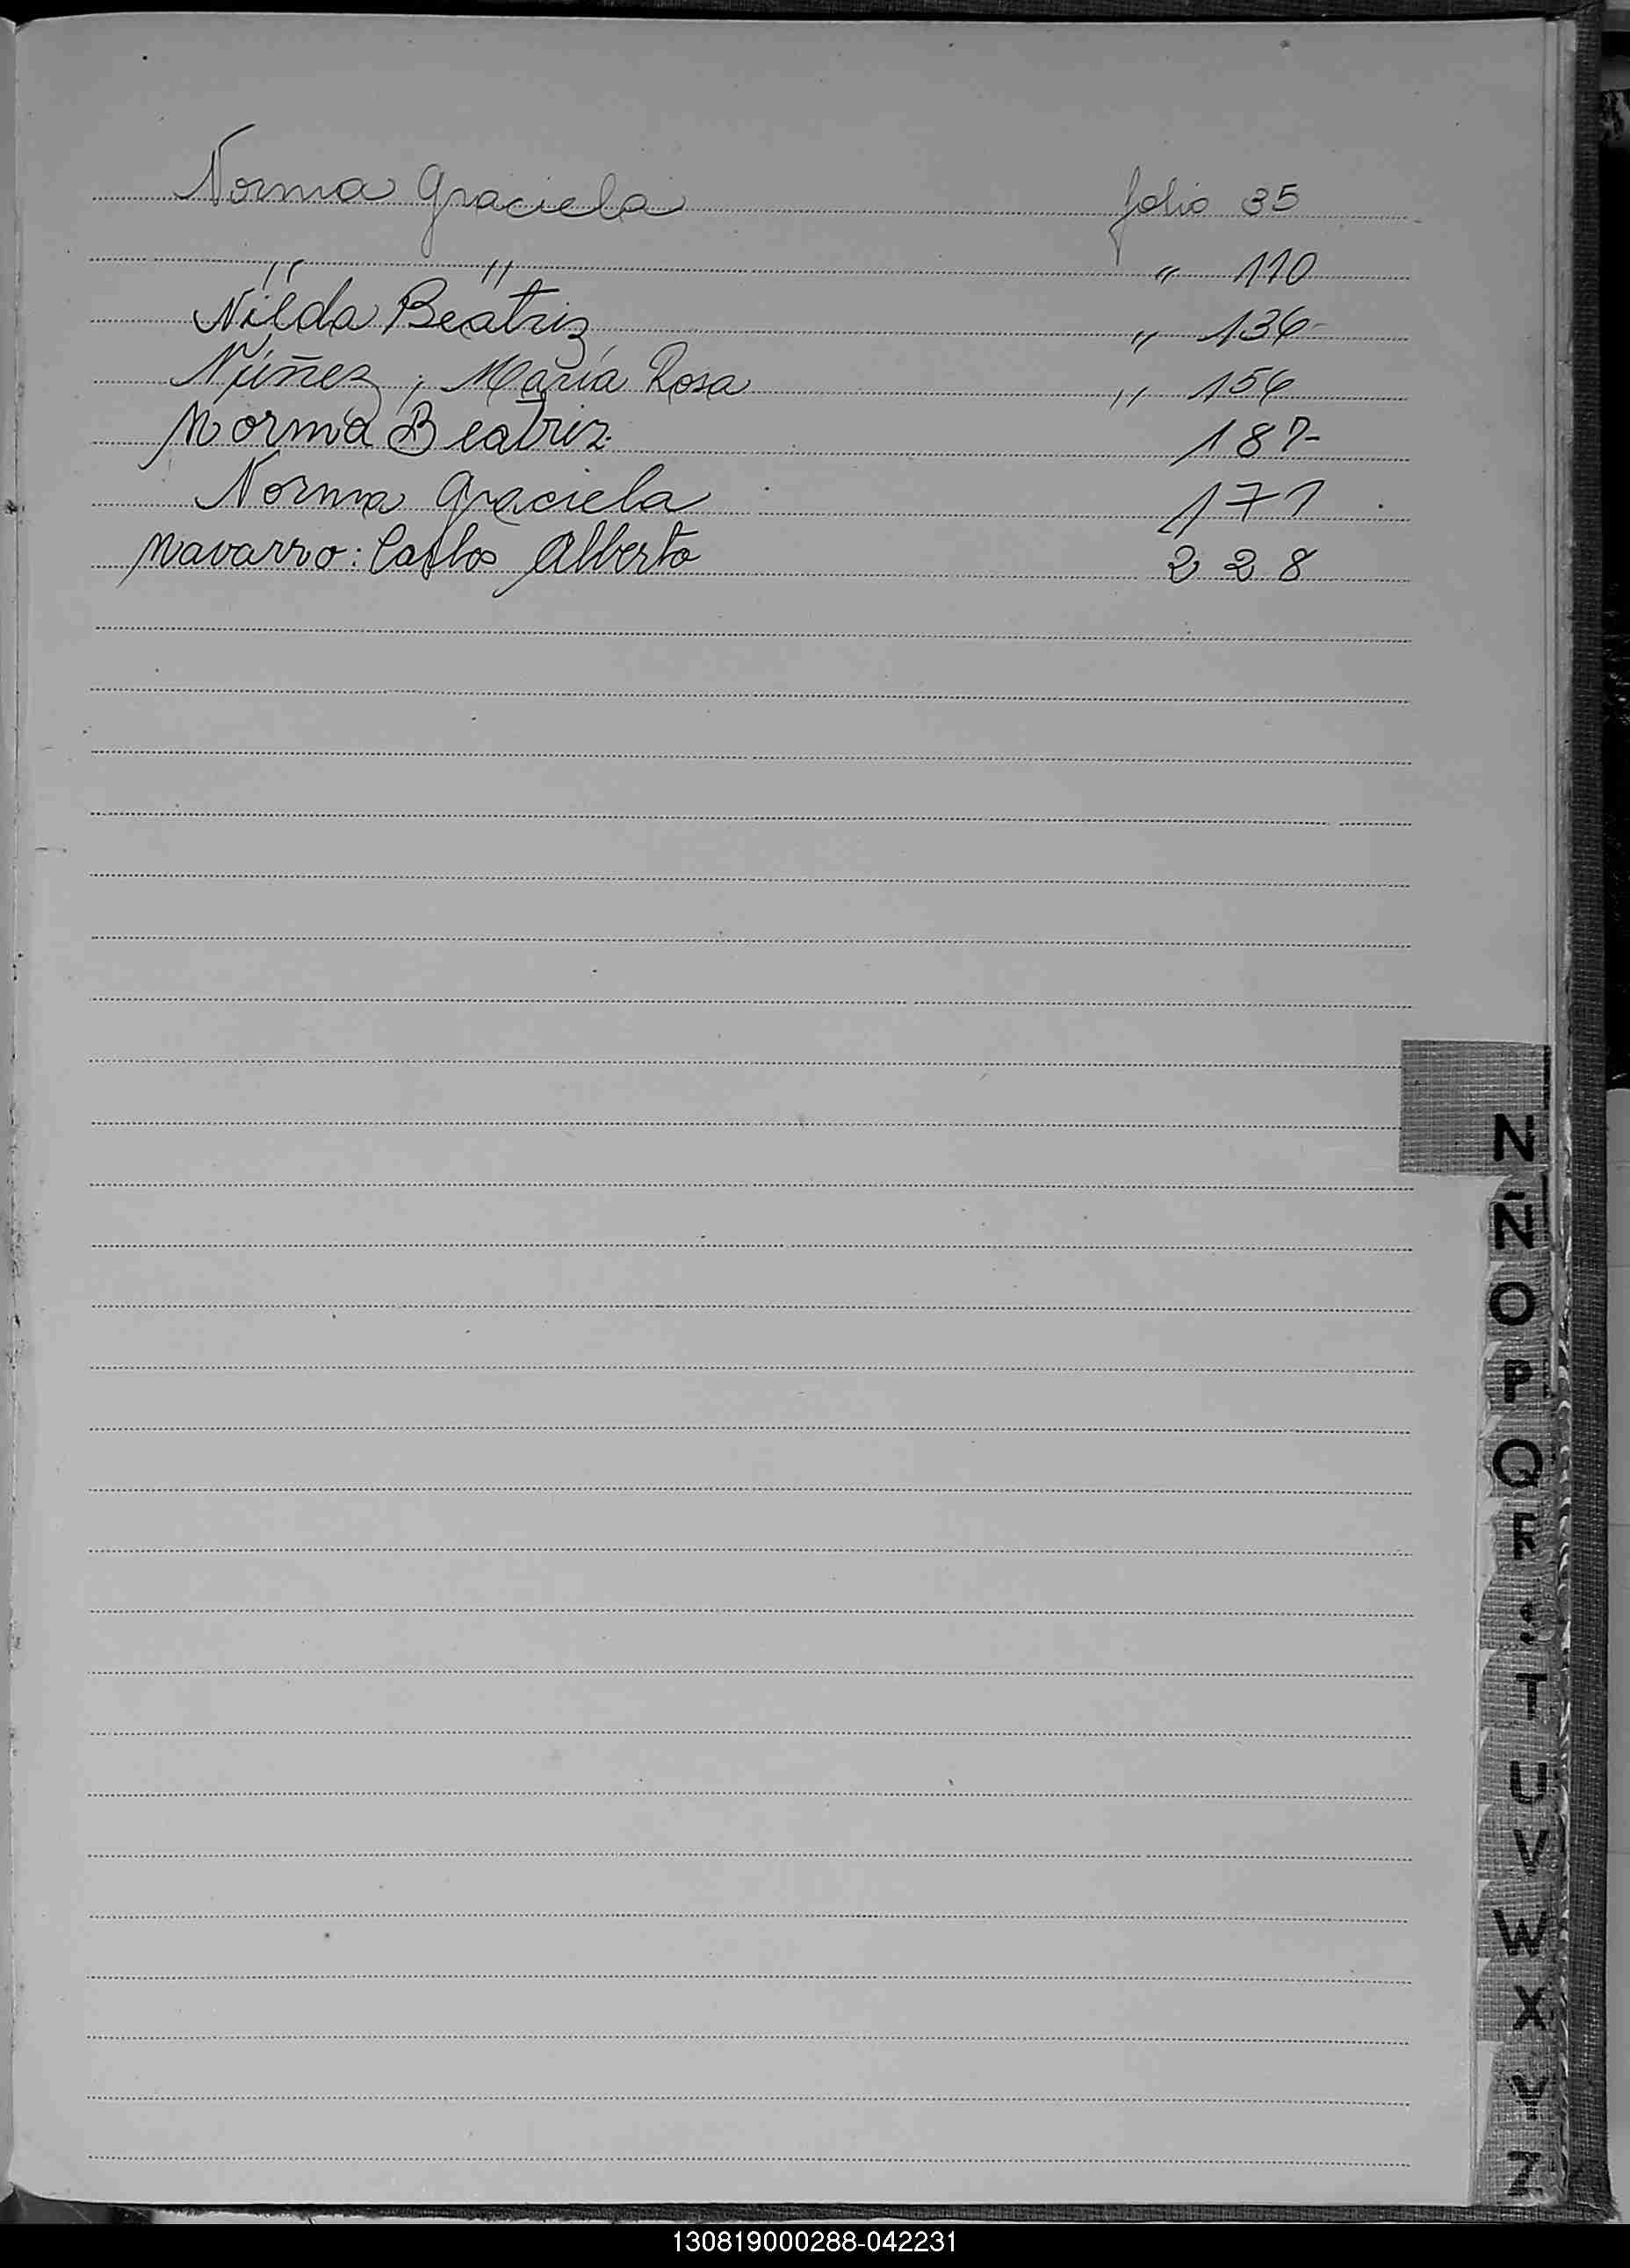 Norma Graciela folio 35
" " " 110
Nilda Beatriz " 136-
Núñez, María Rosa " 156
Norma Beatriz. 187-
Norma Graciela 171
Navarro: Carlos Alberto 228
N
Ñ
O
P
Q
R
T
U
V
W
X
Y
Z
130819000288-042231